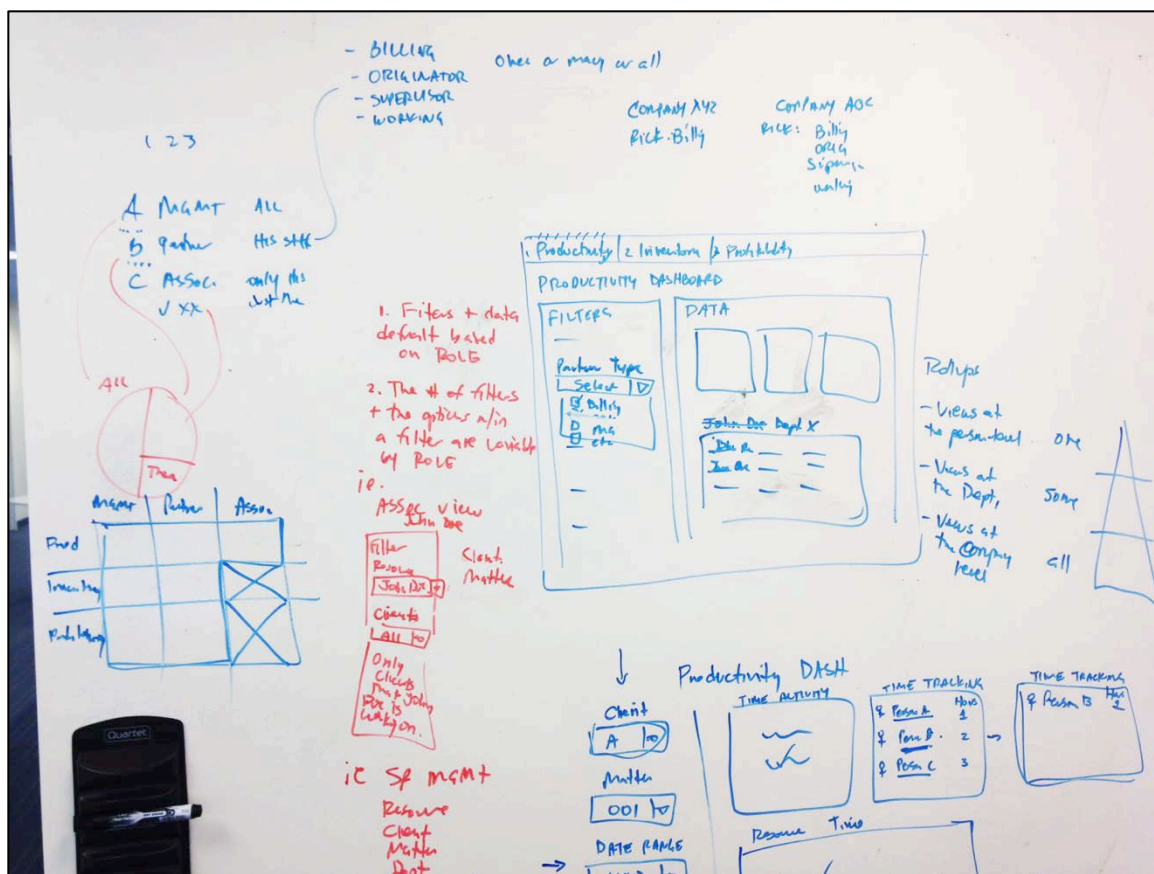 - BILLING
- ORIGINATOR
- SUPERVISOR
- WORKING
One or many or all
COMPANY XYZ
RICK: Billy
COMPANY ABC
RICK: Billy
ORIG
working
1 2 3
A MGMT ALL
B Partner His staff
C ASSOC. only his
Just me
✓ XX
ALL
Mgmt | Partner | Assoc
Prod
Inventory
Profitability
1. Filters + data
default based
on ROLE
2. The # of filters
+ the options w/in
a filter are variable
by ROLE
ie.
ASSOC view
John Doe
Filter
Resource
John Doe
Clients
ALL
Only
Clients
that John
Doe is
working on.
Client
Matter
ie SR MGMT
Resource
Client
Matter
Dept
1. Productivity | 2 Inventory | 3 Profitability
PRODUCTIVITY DASHBOARD
FILTERS
Partner Type
Select
Billing
etc
DATA
John Doe Dept X
John Doe
Jane Doe
Rollups
- Views at
the person level one
- Views at
the Dept, Some
- Views at
the Company
level all
Productivity DASH
Client
A
Matter
001
DATE RANGE
TIME ACTIVITY
TIME TRACKING
Hours
Person A 1
Person B. 2
Person C 3
TIME TRACKING
Person B Hours
Resource Time
Quartet